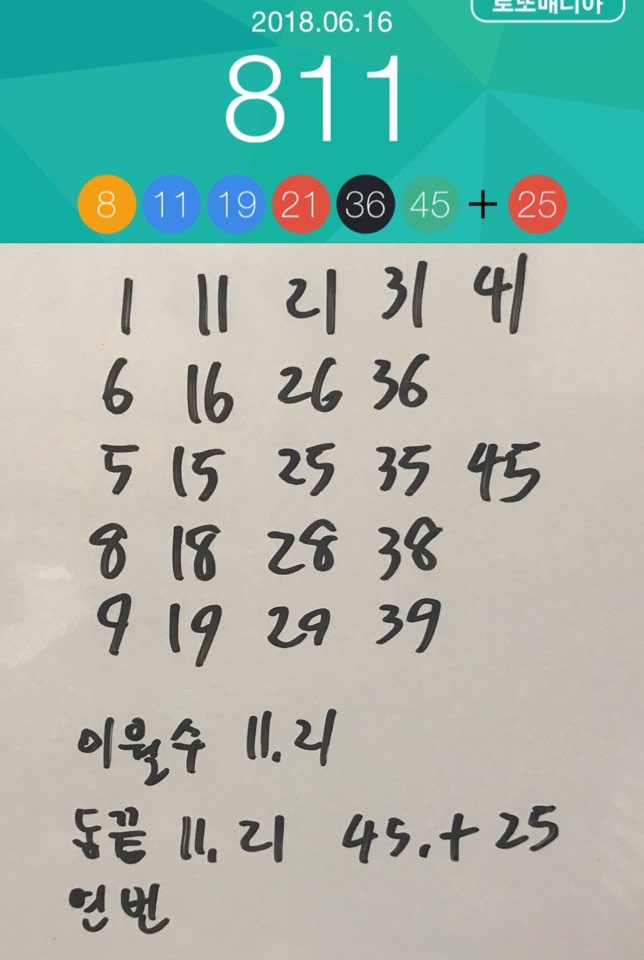 로또매니아
2018.06.16
811
8 11 19 21 36 45 + 25
1 11 21 31 41
6 16 26 36
5 15 25 35 45
8 18 28 38
9 19 29 39
이월수 11.21
동끝 11.21 45.+25
연번